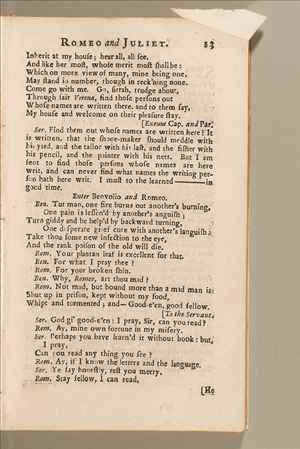 ROMEO and JULIET. 23
Inherit at my house; hear all, all see,
And like her most, whose merit most shall be:
Which on more view of many, mine being one,
May stand in number, though in reck'ning none.
Come go with me. Go, sirrah, trudge about,
Through fair Verona, find those persons out
Whose names are written there, and to them say,
My house and welcome on their pleasure stay.
[Exeunt Cap. and Par.
Ser. Find them out whose names are written here? It
is written, that the shooe-maker should meddle with
his yard, and the tailor with his last, and the fisher with
his pencil, and the painter with his nets. But I am
sent to find those persons whose names are here
writ, and can never find what names the writing per-
son hath here writ. I must to the learned——in
good time.
Enter Benvolio and Romeo.
Ben. Tut man, one fire burns out another's burning,
One pain is lessen'd by another's anguish;
Turn giddy and be help'd by backward turning,
One desperate grief cure with another's languish:
Take thou some new infection to the eye,
And the rank poison of the old will die.
Rom. Your plantan leaf is excellent for that.
Ben. For what I pray thee?
Rom. For your broken shin.
Ben. Why, Romeo, art thou mad?
Rom. Not mad, but bound more than a mad man is:
Shut up in prison, kept without my food,
Whipt and tormented; and—Good-e'en, good fellow.
[To the Servant.
Ser. God gi' good-e'en: I pray, Sir, can you read?
Rom. Ay, mine own fortune in my misery.
Ser. Perhaps you have learn'd it without book: but,
I pray,
Can you read any thing you see?
Rom. Ay, if I know the letters and the language.
Ser. Ye say honestly, rest you merry.
Rom. Stay fellow, I can read.
[He